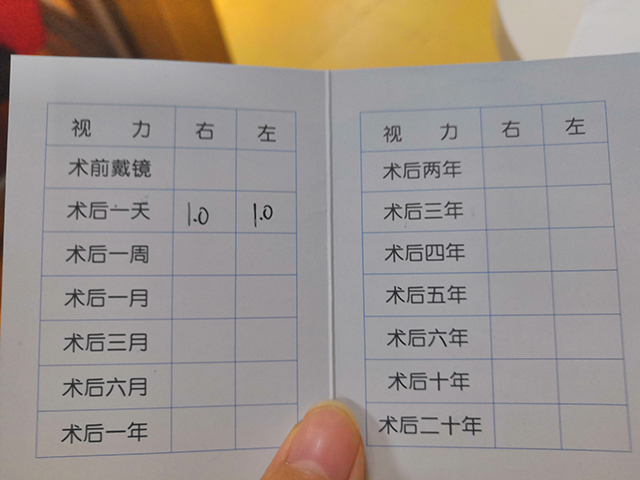 视 力 右 左
术前戴镜
术后一天 1.0 1.0
术后一周
术后一月
术后三月
术后六月
术后一年
视 力 右 左
术后两年
术后三年
术后四年
术后五年
术后六年
术后十年
术后二十年